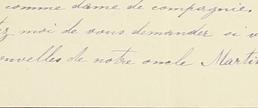 comme dame de compagnie.
moi de vous demander si v
ouvelles de notre oncle Marti